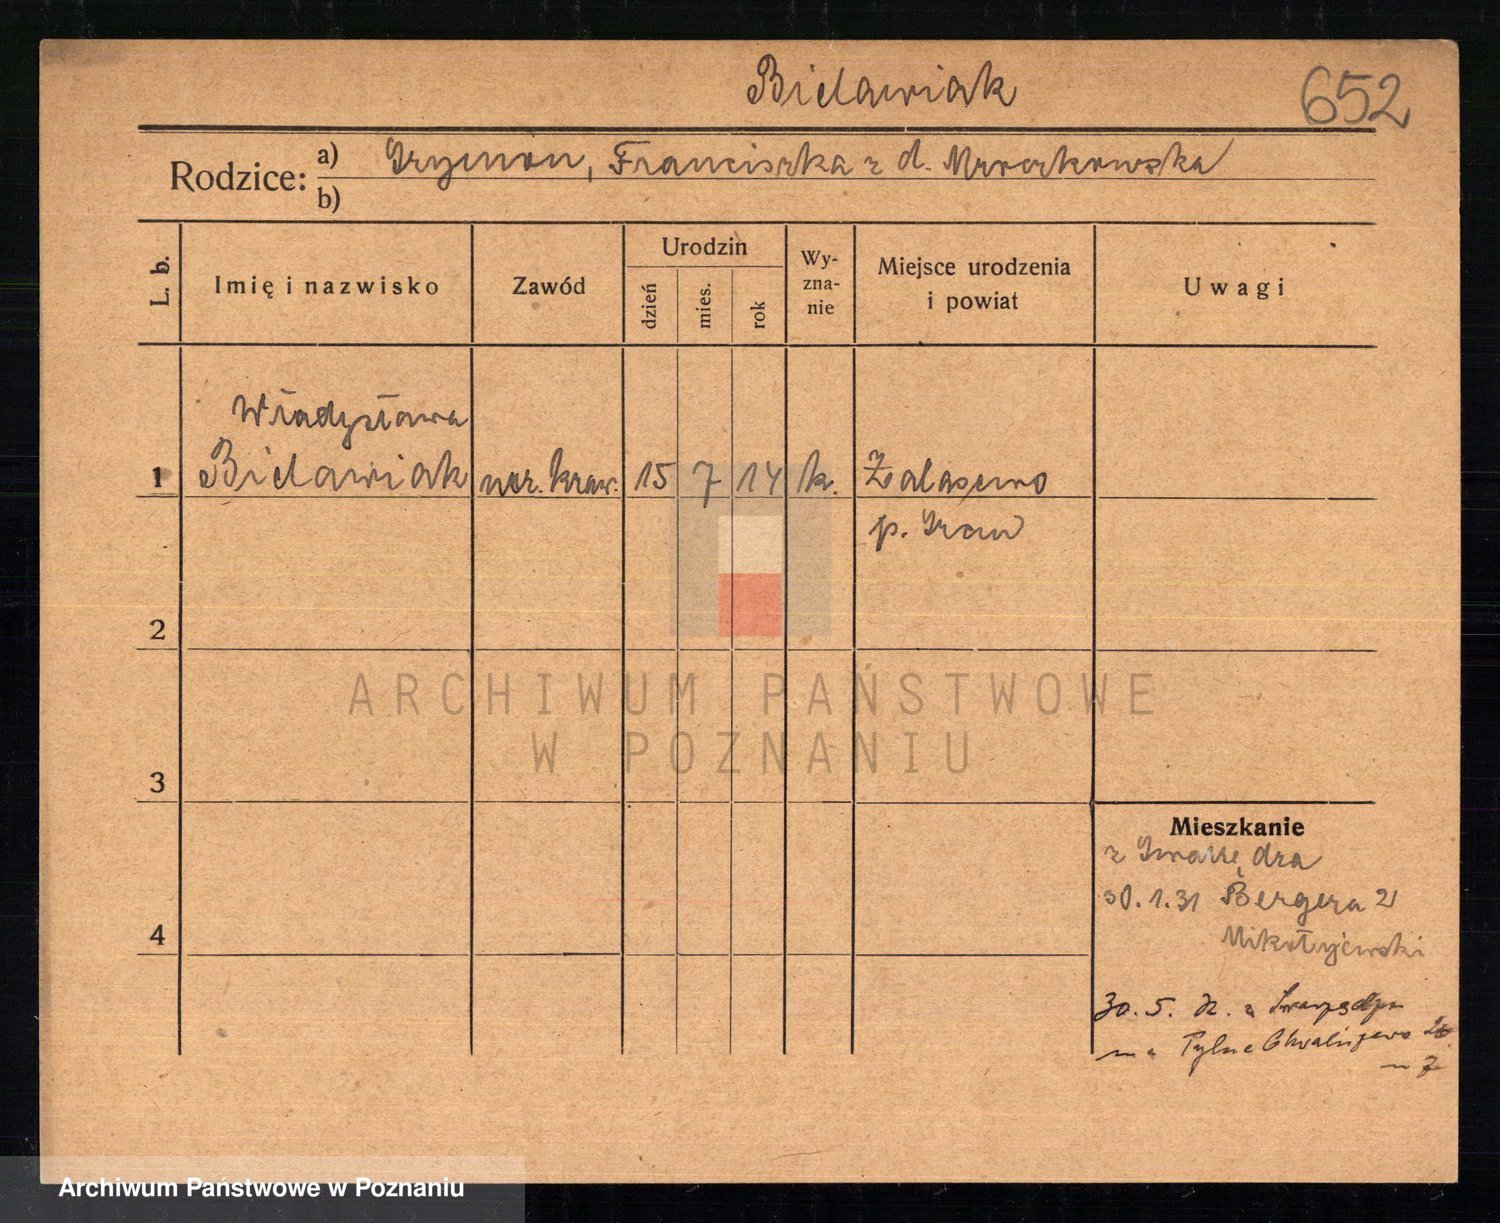 Bielawiak
652
Rodzice: a) Szymon, Franciszka z d. Mroczkowska
b)
L. b.
Imię i nazwisko
Zawód
Urodzin
dzień
mies.
rok
Wy-
zna-
nie
Miejsce urodzenia
i powiat
Uwagi
Władysława
1 Bielawiak ucz. kraw. 15 7 14 k. Zalasewo
p. Śrem
2
3
4
Mieszkanie
30.1.31 Bergera 21
Mikołajewski
30. 5. z Swarzędza
na Tylne Chwaliszewo
ARCHIWUM PAŃSTWOWE
W POZNANIU
Archiwum Państwowe w Poznaniu